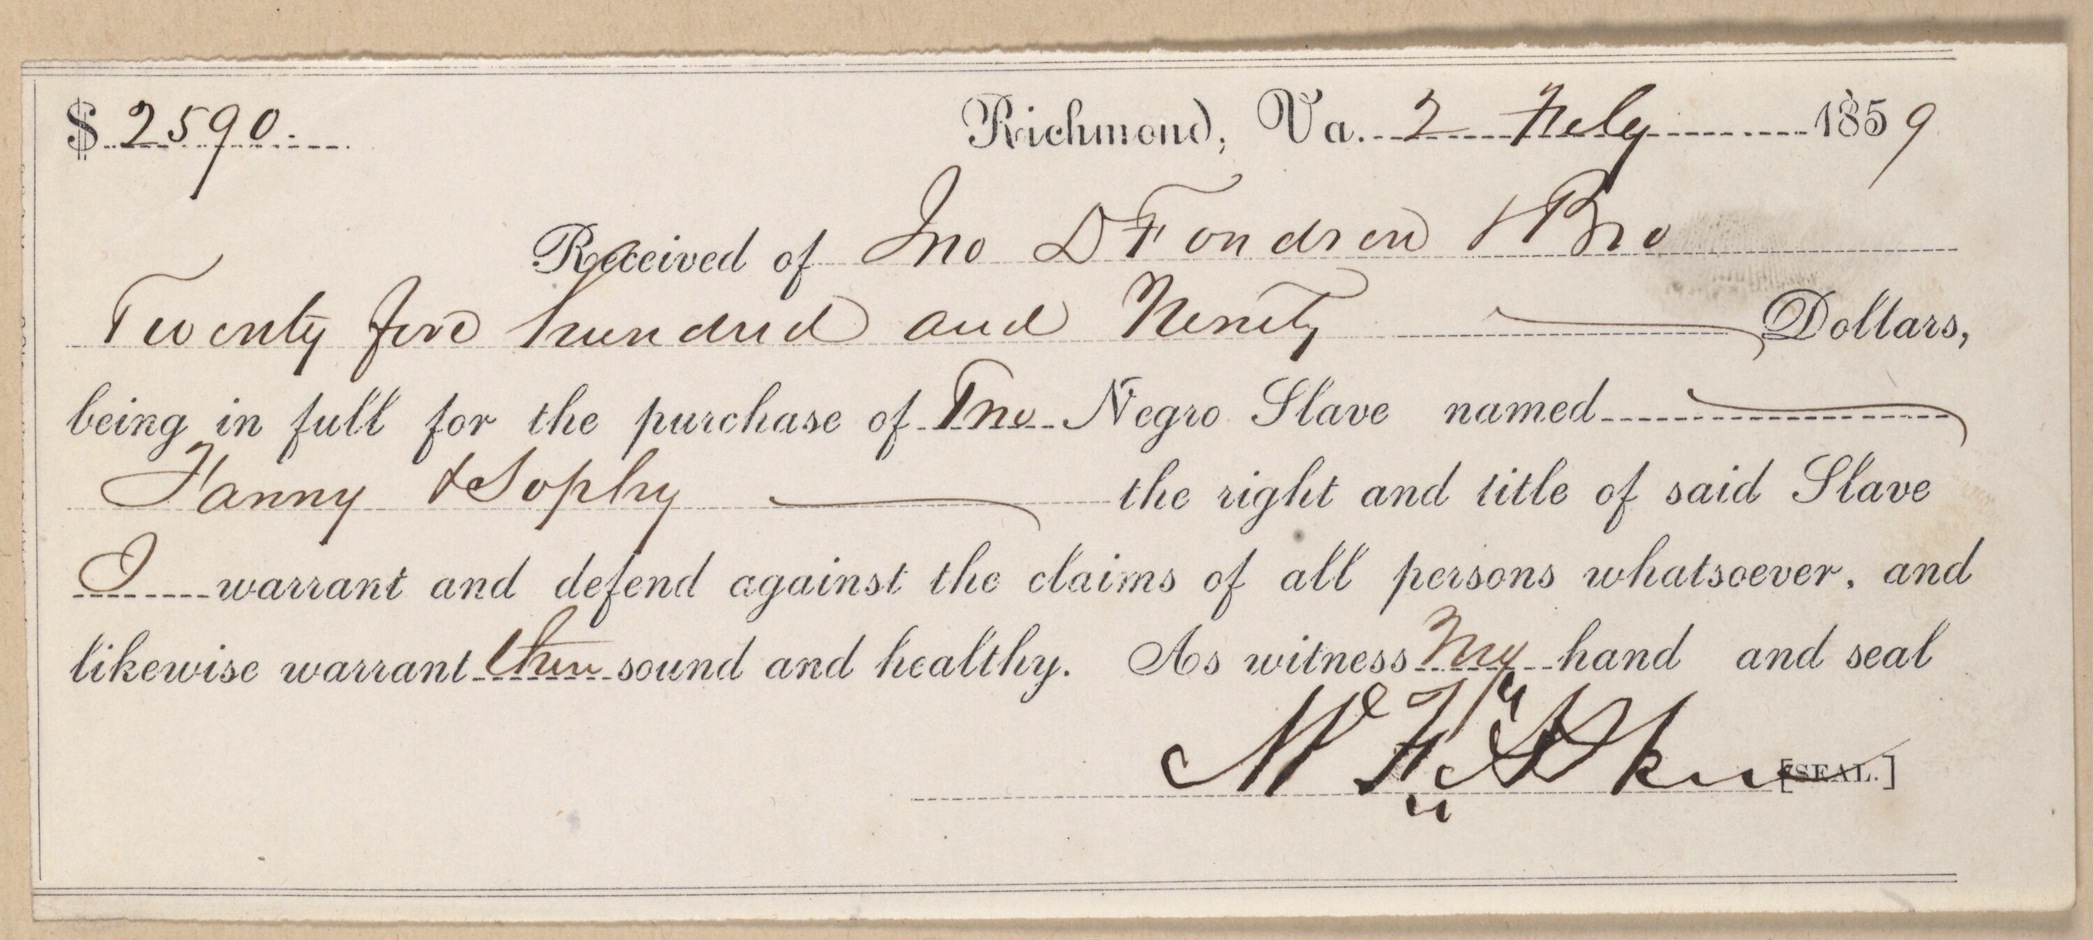 $ 2590. Richmond, Va. 2 Feby 1859
Received of Jno D Fondren & Bro
Twenty five hundred and Ninety Dollars,
being in full for the purchase of Two Negro Slave named
Fanny & Sophy the right and title of said Slave
I warrant and defend against the claims of all persons whatsoever, and
likewise warrant them sound and healthy. As witness my hand and seal
[SEAL.]